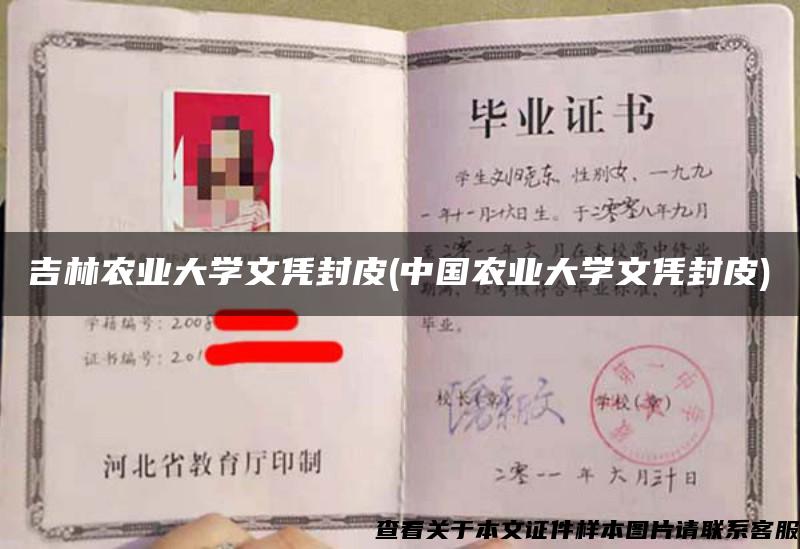 毕业证书
学生刘晓东 性别女、一九九
一年十一月十六日生。于二零零八年九月
至二零一一年六月在本校高中修业
期满，经考核符合毕业标准，准予
毕业。
吉林农业大学文凭封皮(中国农业大学文凭封皮)
学籍编号：2008
证书编号：201
校长(章)
学校(章)
第一中学
河北省教育厅印制
二零一一年六月三十日
查看关于本文证件样本图片请联系客服